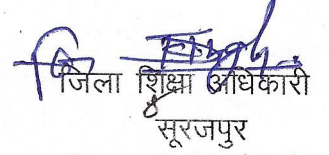 जिला शिक्षा अधिकारी
सूरजपुर